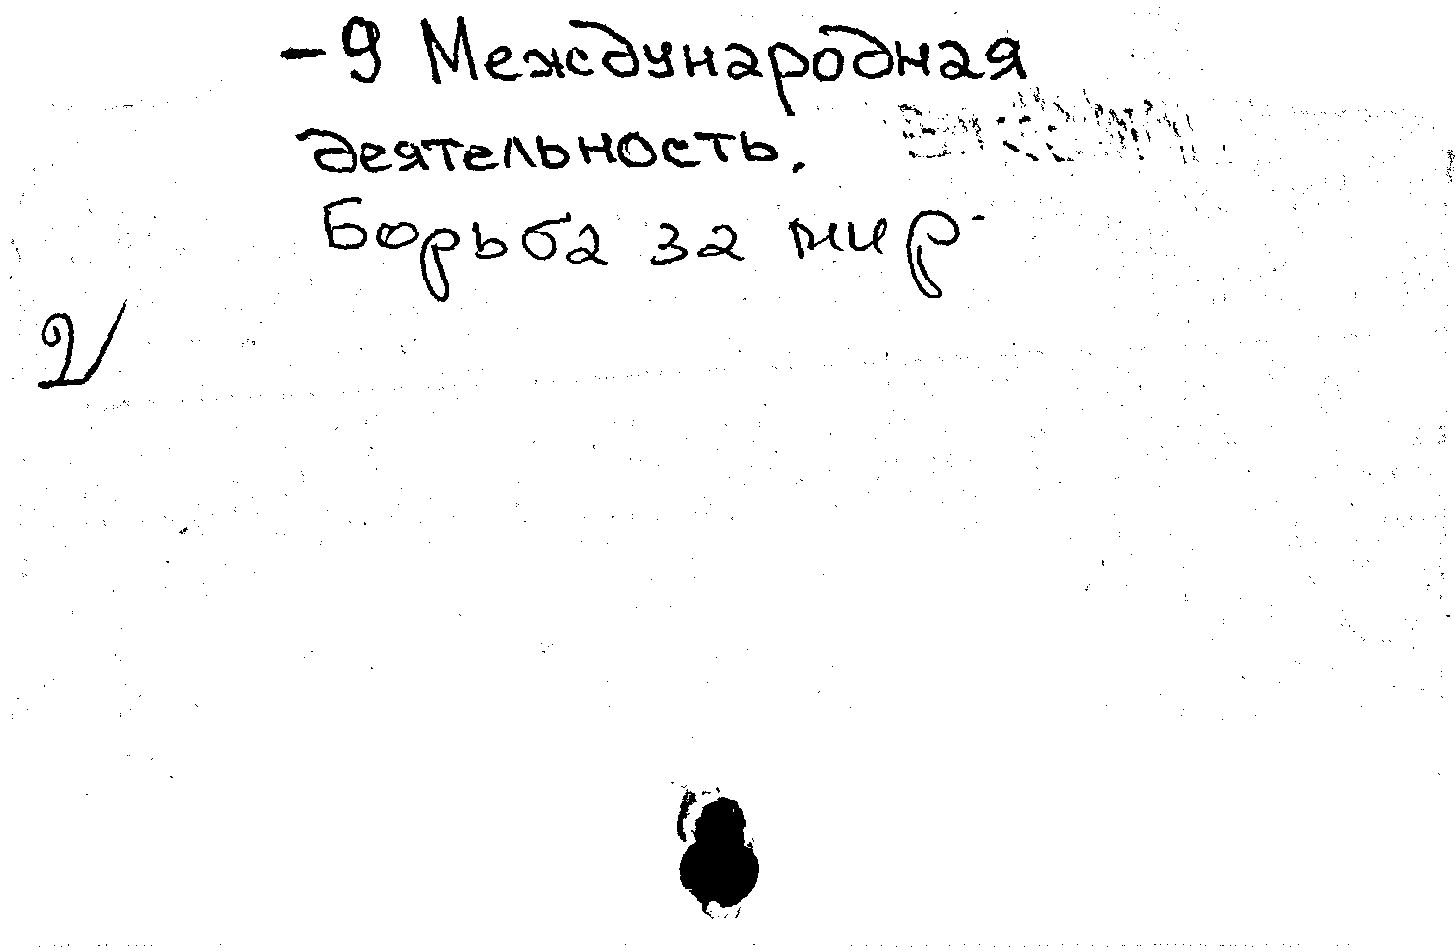 -9 Международная
деятельность.
Борьба за мир